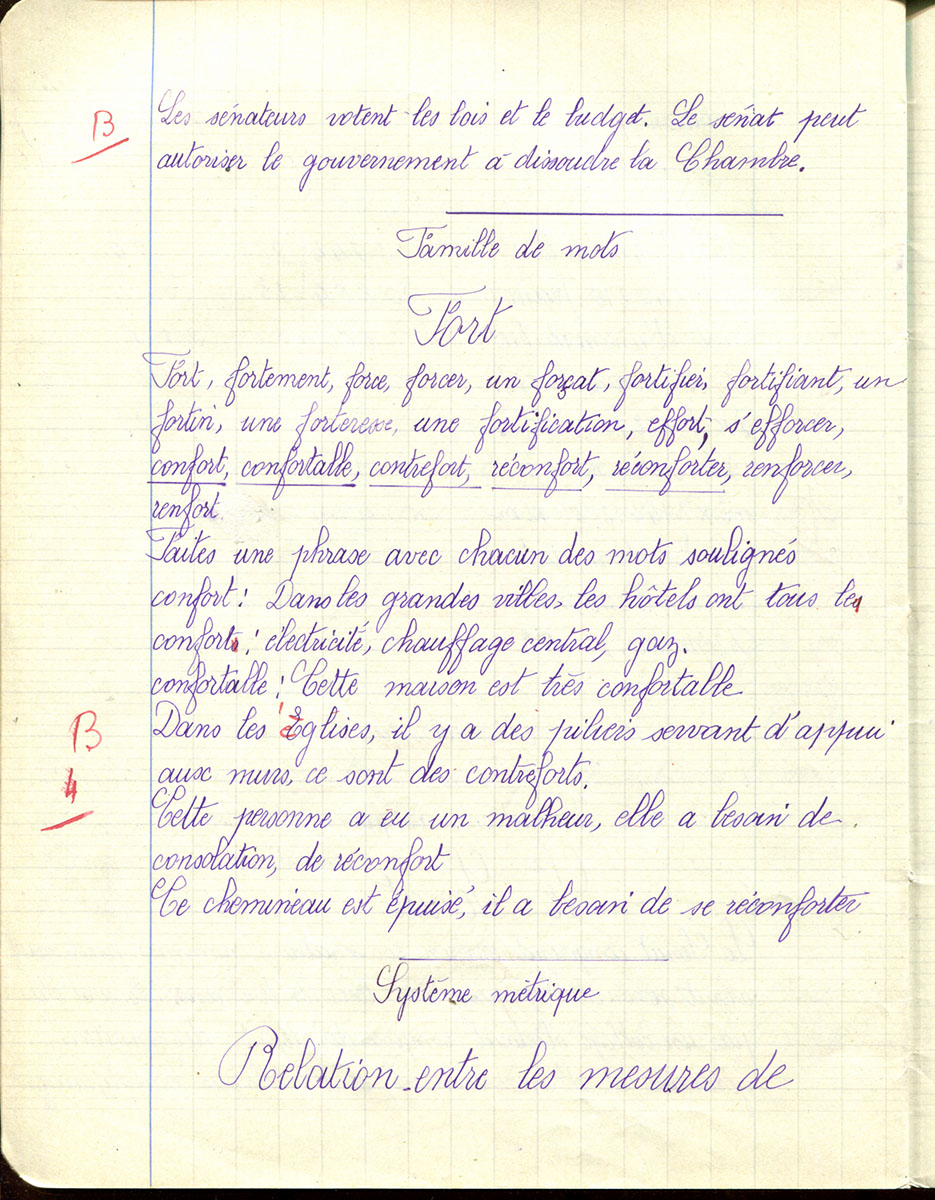 B
Les sénateurs votent les lois et le budget. Le sénat peut
autoriser le gouvernement à dissoudre la Chambre.
Famille de mots
Fort
Fort, fortement, force, forcer, un forçat, fortifier, fortifiant, un
fortin, une forteresse, une fortification, effort, s'efforcer,
confort, confortable, contrefort, réconfort, réconforter, renforcer,
renfort
Faites une phrase avec chacun des mots soulignés
confort : Dans les grandes villes, les hôtels ont tous les
conforts : électricité, chauffage central, gaz.
confortable : Cette maison est très confortable
B
Dans les Eglises, il y a des piliers servant d'appui
4
aux murs, ce sont des contreforts.
Cette personne a eu un malheur, elle a besoin de
consolation, de réconfort
Ce chemineau est épuisé, il a besoin de se réconforter
Système métrique
Relation entre les mesures de